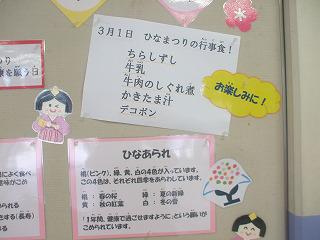 3月1日 ひなまつりの行事食!
ちらしずし
牛乳
牛肉のしぐれ煮
かきたま汁
デコポン
お楽しみに!
ひなあられ
桃(ピンク)、緑、黄、白の4色が入っています。
この4色は、それぞれ四季をあらわしています。
桃 : 春の桜 緑 : 夏の新緑
黄 : 秋の紅葉 白 : 冬の雪
「1年間、健康で過ごせますように」という願いが
こめられています。